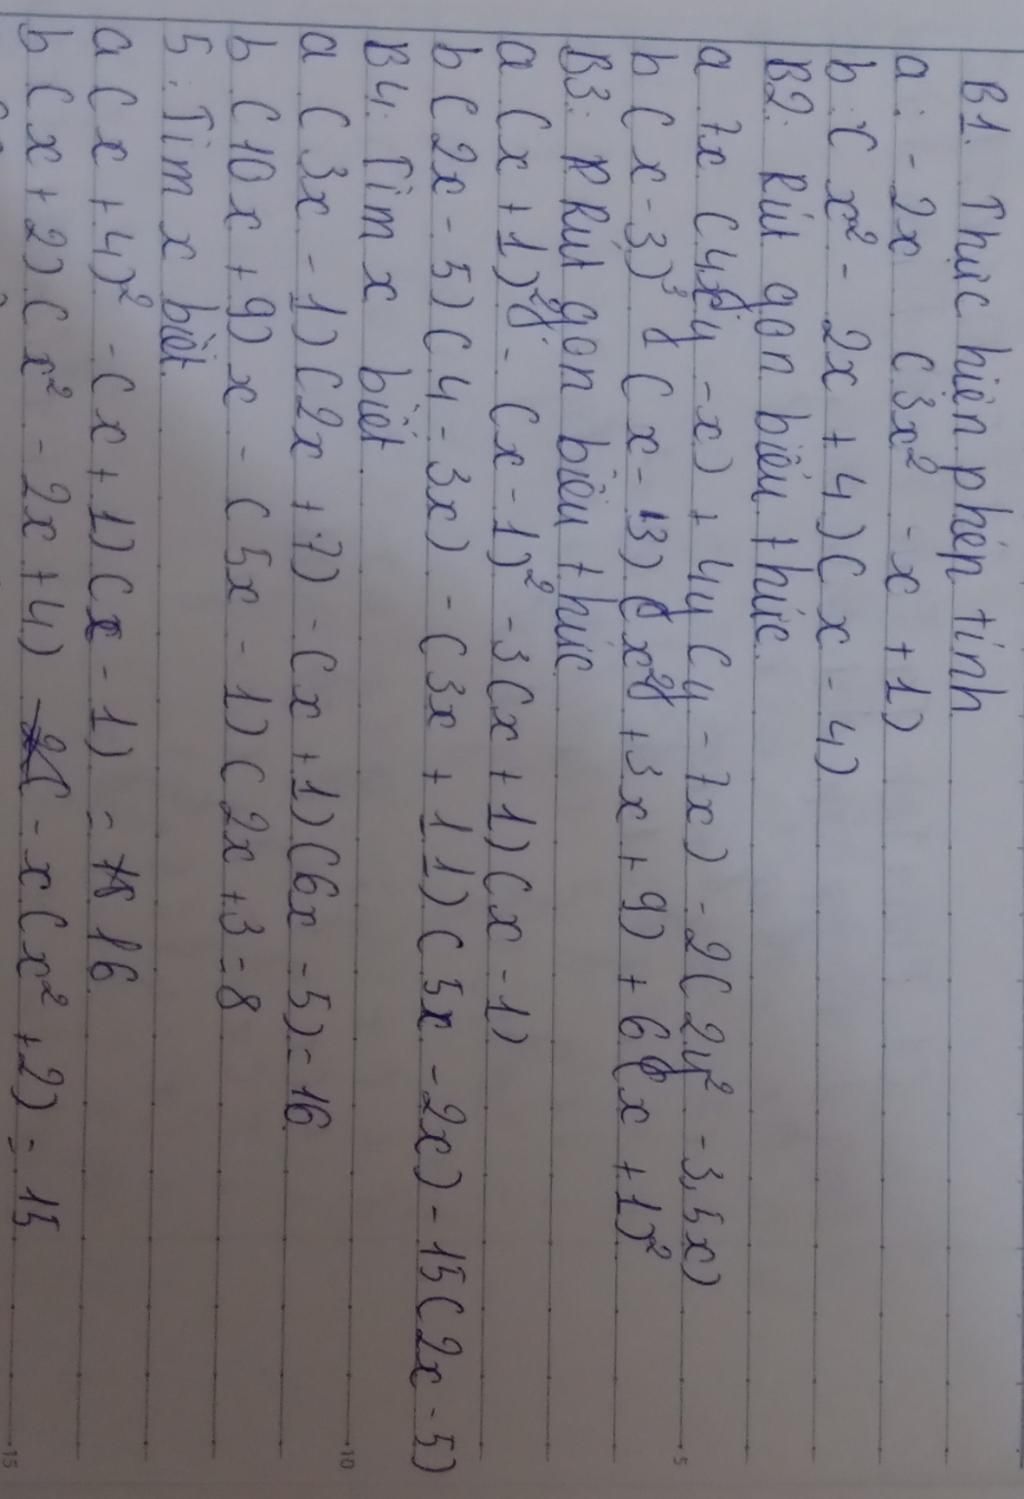 B1. Thực hiện phép tính
a: - 2x (3x² - x + 1)
b: (x² - 2x + 4)(x - 4)
B2: Rút gọn biểu thức
a 7x (4y - x) + 4y (y - 7x) - 2(2y² - 3,5x)
b (x - 3)³ (x - 3) (x² + 3x + 9) + 6(x + 1)²
B3: Rút gọn biểu thức
a (x + 1)² - (x - 1)² - 3(x + 1)(x - 1)
b (2x - 5)(4 - 3x) - (3x + 11)(5x - 2x) - 15(2x - 5)
B4: Tìm x biết
a (3x - 1)(2x + 7) - (x + 1)(6x - 5) = 16
b (10x + 9)x - (5x - 1)(2x + 3 = 8
5: Tìm x biết
a (x + 4)² - (x + 1)(x - 1) = 16
b (x + 2)(x² - 2x + 4) - x(x² + 2) = 15